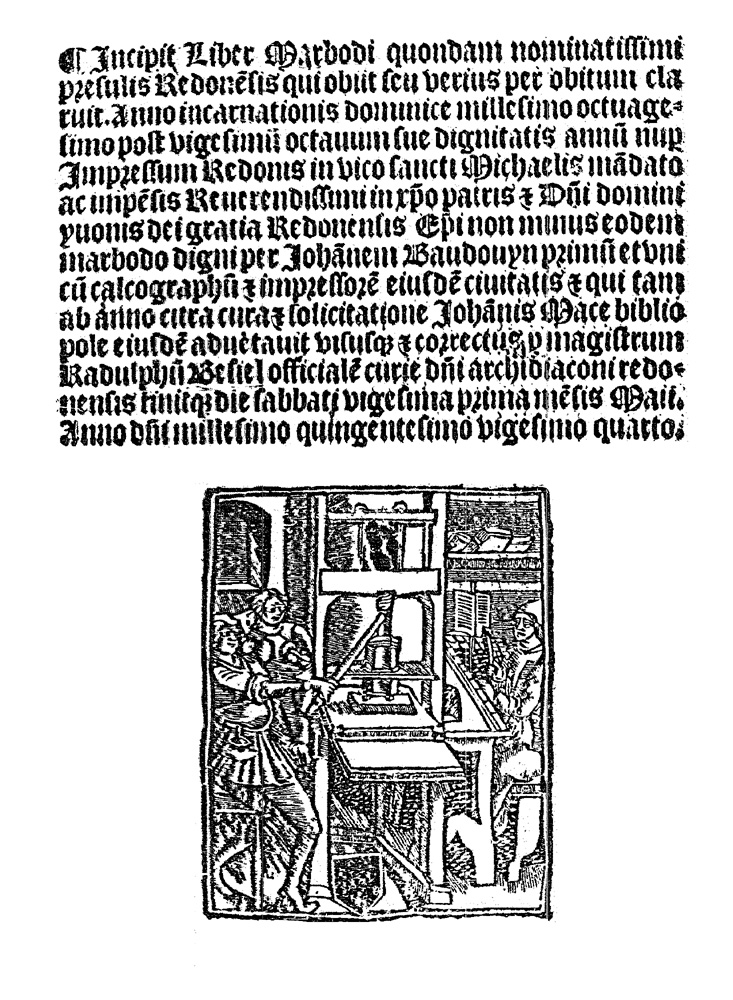 ¶ Incipit Liber Marbodi quondam nominatissimi
presulis Redonēsis qui obiit seu verius per obitum cla
ruit. Anno incarnationis dominice millesimo octuage⸗
simo post vigesimū octauum sue dignitatis annū nup
Impressum Redonis in vico sancti Michaelis mādato
ac impēsis Reuerendissimi in xp̄o patris ⁊ Dn̄i domini
yuonis dei gratia Redonensis Ep̄i non minus eodem
marbodo digni per Johānem Baudouyn primū et vni
cū calcographū ⁊ impressorē eiusdē ciuitatis ⁊ qui tam
ab anno citra cura ⁊ solicitatione Johānis Mace biblio
pole eiusdē aduētauit visusqꝫ ⁊ correctus p magistrum
Radulphū Besiel officialē curie dn̄i archidiaconi redo⸗
nensis finitqꝫ die sabbati vigesima prima mēsis Maii.
Anno dn̄i millesimo quingentesimo vigesimo quarto.